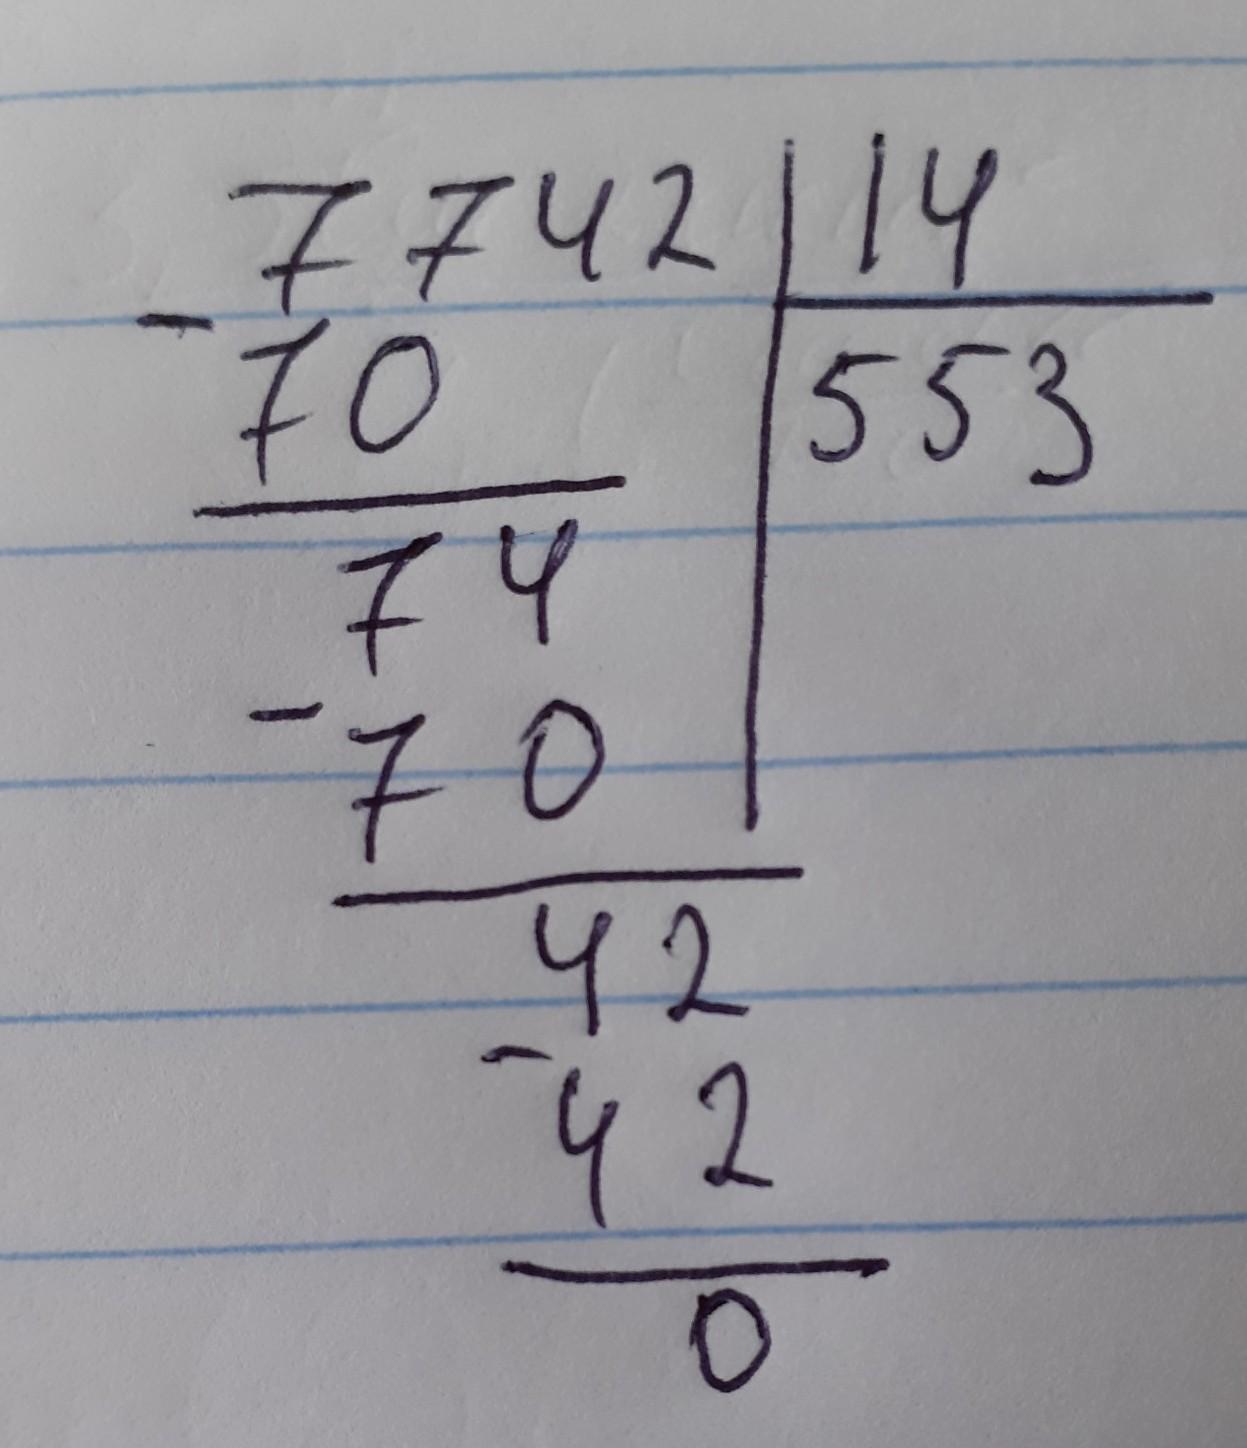 7742 14
- 70 553
74
- 70
42
- 42
0